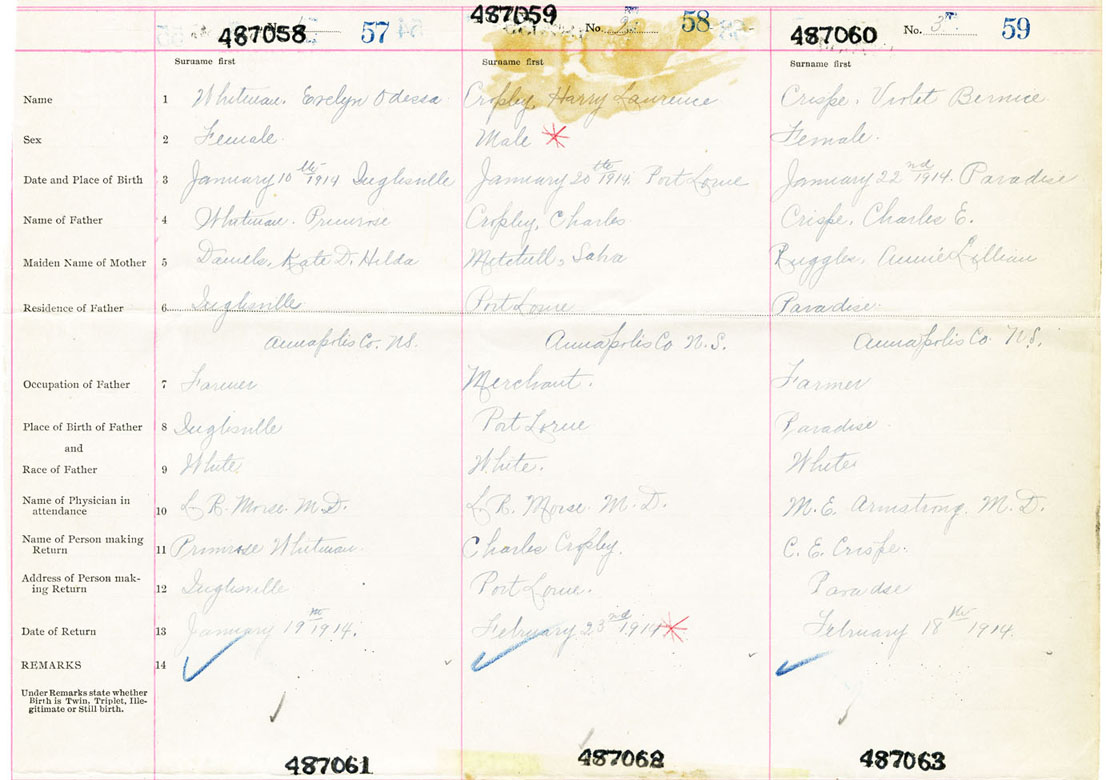 487058 No. 57 487059 No. 2 58 487060 No. 3 59
Surname first Surname first Surname first
Name 1 Whitman, Evelyn Odessa Cropley, Harry Laurence Crispe, Violet Bernice
Sex 2 Female Male Female.
Date and Place of Birth 3 January 10th 1914 Inglisville January 20th 1914. Port Lorne January 22nd 1914. Paradise
Name of Father 4 Whitman. Primrose Cropley, Charles Crispe, Charles E.
Maiden Name of Mother 5 Daniels, Kate D. Hilda Ruggles, Annie Lillian
Residence of Father 6 Inglisville Port Lorne Paradise.
Annapolis Co. N.S. Annapolis Co N.S. Annapolis Co. N.S.
Occupation of Father 7 Farmer Merchant. Farmer
Place of Birth of Father 8 Inglisville Port Lorne Paradise
and
Race of Father 9 White White. White
Name of Physician in
attendance 10 L. R. Morse. M.D. L. R. Morse. M.D. M.E. Armstrong. M.D.
Name of Person making
Return 11 Primrose Whitman. Charles Cropley. C. E. Crispe.
Address of Person mak-
ing Return 12 Inglisville Port Lorne. Paradise
Date of Return 13 January 19th 1914. February 23rd 1914 February 18th 1914.
REMARKS 14
Under Remarks state whether
Birth is Twin, Triplet, Ille-
gitimate or Still birth.
487061 487062 487063